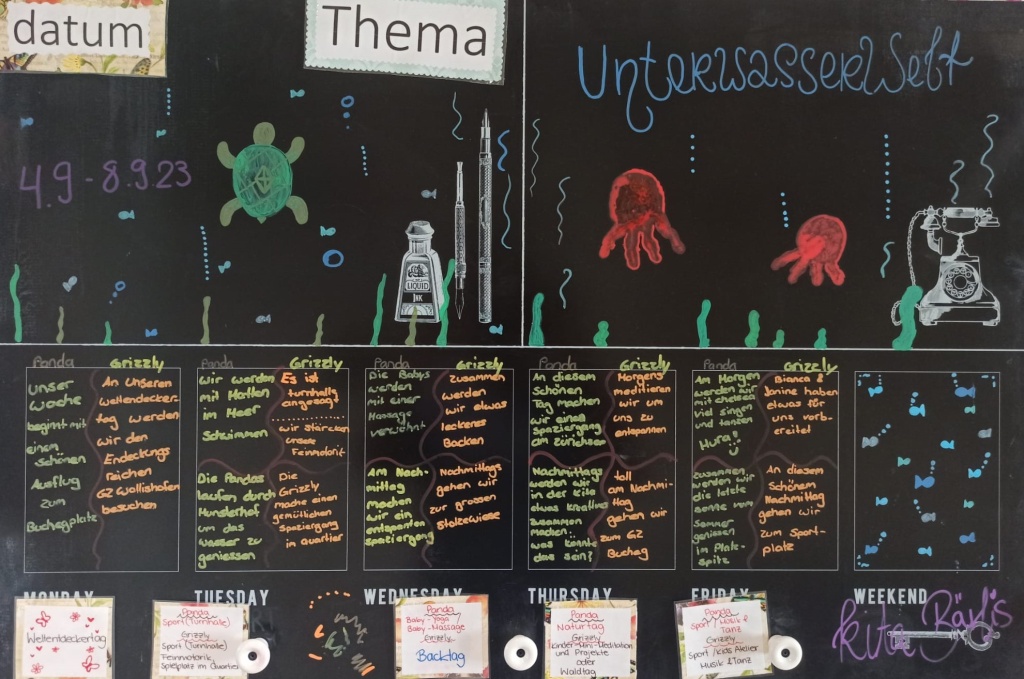 datum
Thema
UnterwasserWelt
4.9 - 8.9.23
LIQUID
INK
Panda
Grizzly
Unser
woche
beginnt mit
einem
schönen
Ausflug
zum
Bucheggplatz
An Unseren
Weltendecker-
tag werden
wir den
Endeckungs
reichen
GZ Wollishofen
besuchen
Panda
Grizzly
Wir werden
mit Matten
im Meer
Schwimmen
Es ist
turnhalle
angesagt
wir stärcken
unsere
Feinmotorik
Die Pandas
laufen durch
Hunsterhof
um das
wasser zu
geniessen
Die
Grizzly
mache einen
gemütlichen
Spaziergang
in quartier
Panda
Grizzly
Die Babys
werden
mit einer
Massage
verwöhnt
Zusammen
werden
wir etwas
leckeres
Backen
Am Nach-
mittag
machen
wir ein
entspanten
spaziergang
Nachmittags
gehen wir
zur grossen
Stolzewiese
Panda
Grizzly
An diesem
Schönen
Tag machen
wir einen
Spaziergang
am Zürichsee
Morgens
meditieren
wir um
uns zu
entspannen
Nachmittags
werden wir
in der kita
etwas kreatives
zusammen
machen.
was könnte
das sein?
toll
am Nachmi-
ttag
gehen wir
zum GZ
Bucheg
Panda
Grizzly
Am Morgen
werden wir
mit chelsea
viel singen
und tanzen
Hura!!
Bianca &
Janine haben
etwas für
uns vorb-
ereitet
Zusammen
werden wir
die letzte
sonne vom
Sommer
geniessen
im Platz-
spitz
An diesem
Schönem
Nachmittag
gehen wir
zum Sport-
platz
MONDAY
TUESDAY
WEDNESDAY
THURSDAY
FRIDAY
WEEKEND
Weltentdeckertag
Panda
Sport (Turnhalle)
Grizzly
Sport (Turnhalle)
Feinmotorik
Spielplatz im Quartier
Panda
Baby-Yoga/
Baby-Massage
Grizzly
Backtag
Panda
Naturtag
Grizzly
Kinder-Mini-Meditation
und Projekte
oder
Waldtag
Panda
Sport/Musik &
Tanz
Grizzly
Sport/Kids Atelier
Musik & Tanz
kita Bärlis